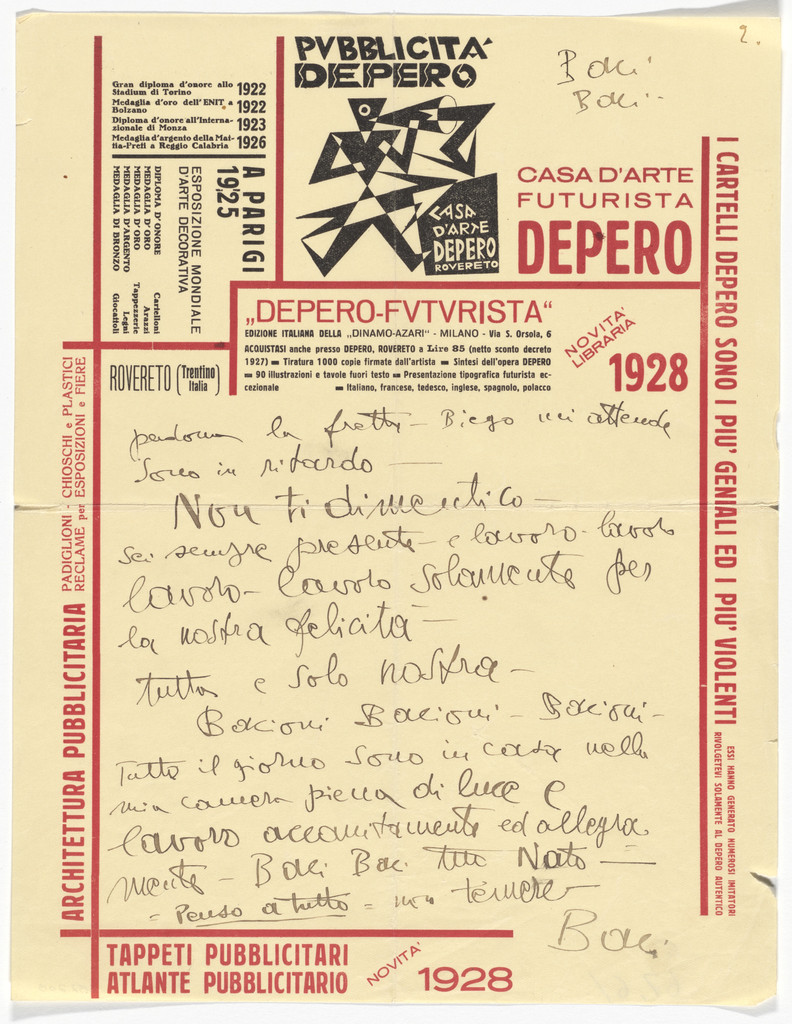 2.
Baci
Baci -
PVBBLICITA'
DEPERO
CASA
D'ARTE
DEPERO
ROVERETO
Gran diploma d'onore allo
Stadium di Torino 1922
Medaglia d'oro dell'ENIT a
Bolzano 1922
Diploma d'onore all'Interna-
zionale di Monza 1923
Medaglia d'argento della Mat-
tia-Preti a Reggio Calabria 1926
A PARIGI
19,25
ESPOSIZIONE MONDIALE
D'ARTE DECORATIVA
DIPLOMA D'ONORE Cartelloni
MEDAGLIA D'ORO Arazzi
MEDAGLIA D'ORO Tappezzerie
MEDAGLIA D'ARGENTO Legni
MEDAGLIA DI BRONZO Giocattoli
CASA D'ARTE
FUTURISTA
DEPERO
„DEPERO-FVTVRISTA“
EDIZIONE ITALIANA DELLA „DINAMO-AZARI“ - MILANO - Via S. Orsola, 6
ACQUISTASI anche presso DEPERO, ROVERETO a Lire 85 (netto sconto decreto
1927) — Tiratura 1000 copie firmate dall'artista — Sintesi dell'opera DEPERO
— 90 illustrazioni e tavole fuori testo — Presentazione tipografica futurista ec-
cezionale — Italiano, francese, tedesco, inglese, spagnolo, polacco
NOVITA'
LIBRARIA
1928
ROVERETO (Trentino Italia)
I CARTELLI DEPERO SONO I PIU' GENIALI ED I PIU' VIOLENTI
ESSI HANNO GENERATO NUMEROSI IMITATORI
RIVOLGETEVI SOLAMENTE AL DEPERO AUTENTICO
ARCHITETTURA PUBBLICITARIA
PADIGLIONI - CHIOSCHI e PLASTICI
RECLAME per ESPOSIZIONI e FIERE
perdona la fretta - Biego mi attende
Sono in ritardo —
Non ti dimentico -
sei sempre presente - e lavoro - lavoro
lavoro - lavoro solamente per
la nostra felicità -
tutta e solo nostra -
Bacioni Bacioni - Bacioni -
Tutto il giorno sono in casa nella
mia camera piena di luce e
lavoro accanitamente ed allegra
mente - Baci Baci tuo Nato —
= Penso a tutto = non temere -
Baci
TAPPETI PUBBLICITARI
ATLANTE PUBBLICITARIO
NOVITA'
1928